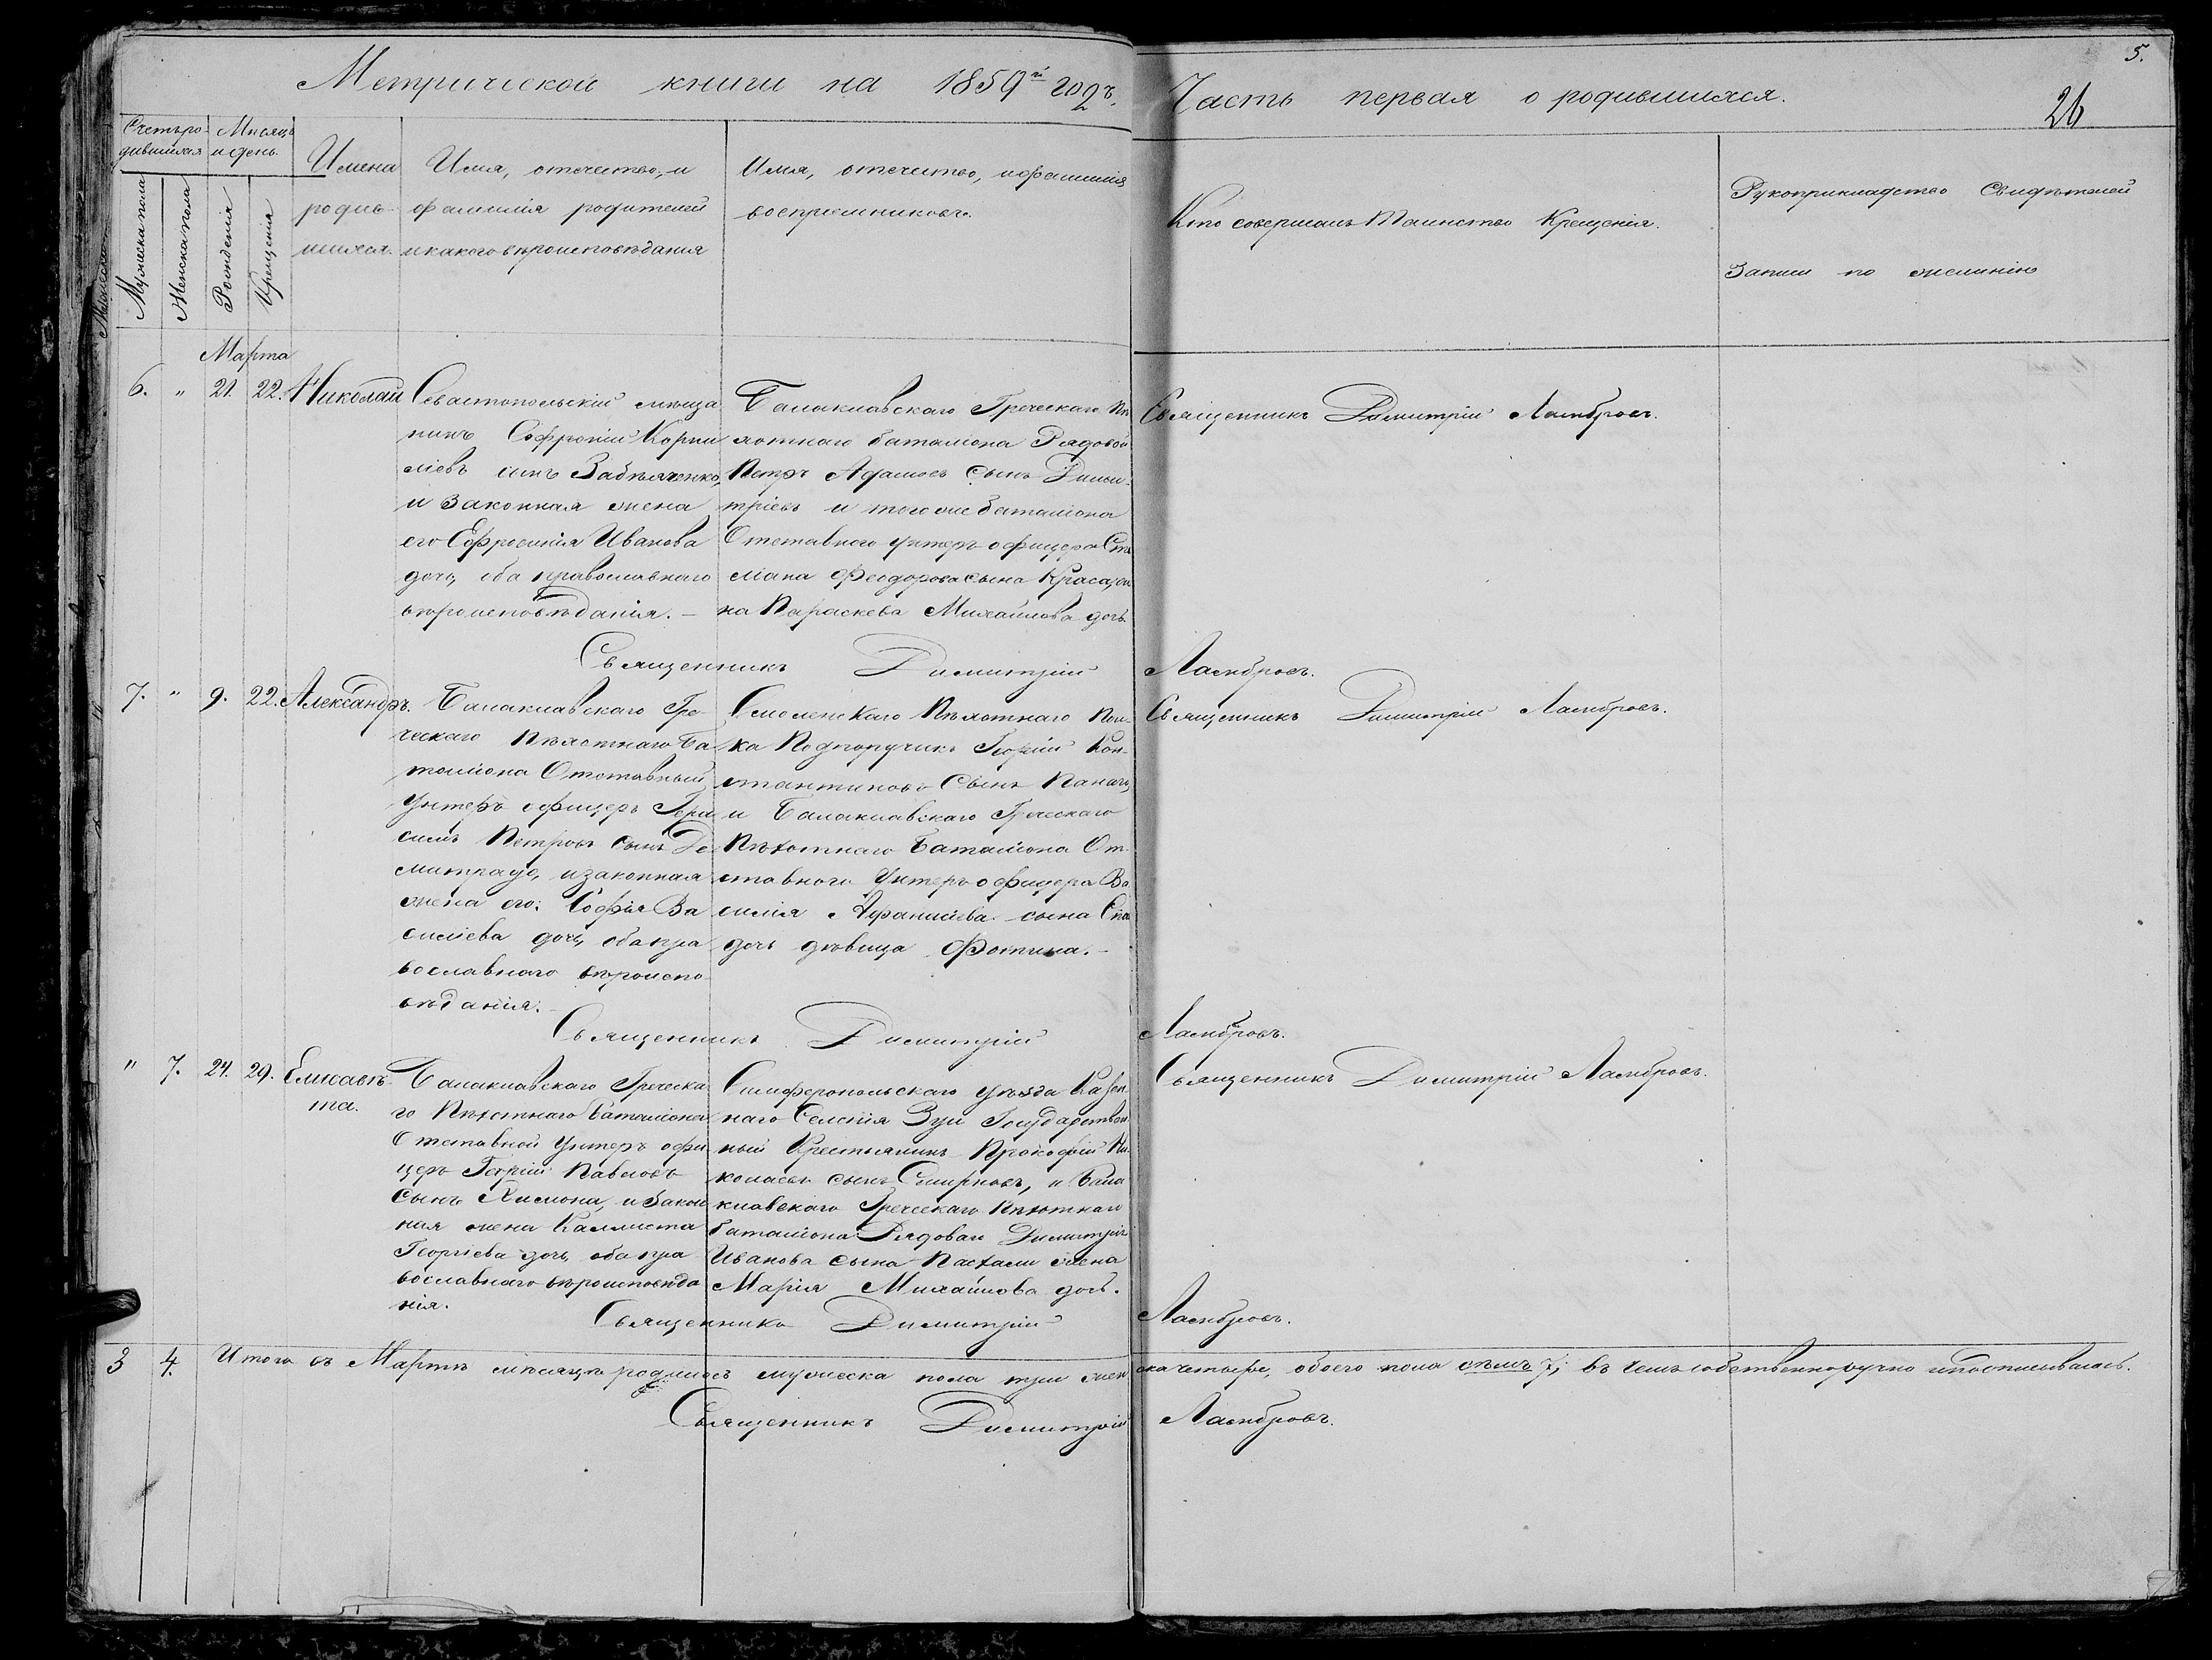 Метрической книги на 1859й годъ,
Часть первая о родившихся.
5.
26
Счетъ ро-
дившихся
Мѣсяцъ
и день.
Мужеска пола
Женска пола
Рожденія
Крещенія
Имена
родив-
шихся.
Имя, отечество, и
фамилія родителей
и какого вѣроисповѣданія
Имя, отечество, и фамилія
воспріемниковъ.
Кто совершалъ Таинство Крещенія.
Рукоприкладство Свидѣтелей
Записи по желанію
Марта
6. " 21. 22. Николай
Севастопольскій мѣща
нинъ Софроній Корни
ліевъ сынъ
и законная жена
его Ефросинія Иванова
дочь, оба православнаго
вѣроисповѣданія. –
Балаклавскаго Греческаго Пѣ
хотнаго баталіона Рядовой
Петръ Адамовъ сынъ Дими-
тріевъ и того же баталіона
Отставнаго унтеръ офицера
Феодорова сына
на Параскева Михайлова дочь
Священникъ Димитрій Ламбровъ.
Священникъ Димитрій Ламбровъ.
7. " 9. 22. Александръ.
Балаклавскаго Гре-
ческаго Пѣхотнаго Ба
таліона Отставный
Унтеръ офицеръ Гера
симъ Петровъ сынъ Де
и законная
жена его: Софія Ва
силіева дочь, оба пра
вославнаго вѣроиспо
вѣданія. –
Смоленскаго Пѣхотнаго Пол-
ка Подпоручикъ Георгій Кон-
стантиновъ Сынъ
и Балаклавскаго Греческаго
Пѣхотнаго Баталіона От
ставнаго Унтеръ офицера Ва
силія Афанасіева сына
дочь дѣвица Фотина. –
Священникъ Димитрій Ламбровъ.
Священникъ Димитрій Ламбровъ.
" 7. 24. 29. Елисаве
та.
Балаклавскаго Греческа
го Пѣхотнаго Баталіона
Отставной Унтеръ офи
церъ Георгій Павловъ
Сынъ и закон
ная жена Каллиста
Георгіева дочь, оба пра
вославнаго вѣроисповѣда
нія.
Симферопольскаго уѣзда Казен
наго Селенія Зуи Государствен
ный Крестьянинъ Прокофій Ни
колаевъ сынъ Смирновъ, и Бала
клавскаго Греческаго Пѣхотнаго
баталіона Рядоваго Димитрія
Иванова сына Пасхали жена
Марія Михайлова дочь.
Священникъ Димитрій Ламбровъ.
Священникъ Димитрій Ламбровъ.
3 4. Итого въ Мартѣ мѣсяцѣ родилось мужеска пола три жен ска четыре, обоего пола семь 7; въ чемъ собственноручно и подписываюсь.
Священникъ Димитрій Ламбровъ.